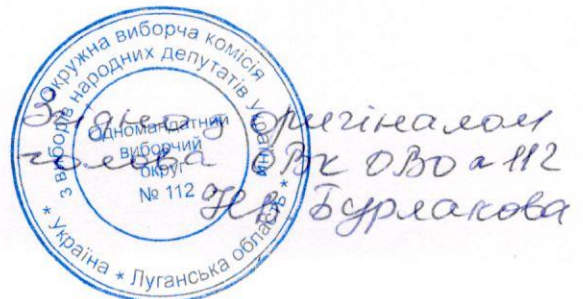 Окружна виборча комісія
з виборів народних депутатів України
* Україна * Луганська область *
Одномандатний
виборчий
округ
№ 112
Згідно з оригіналом
голова ОВК ОВО № 112
Н.В. Бурлакова